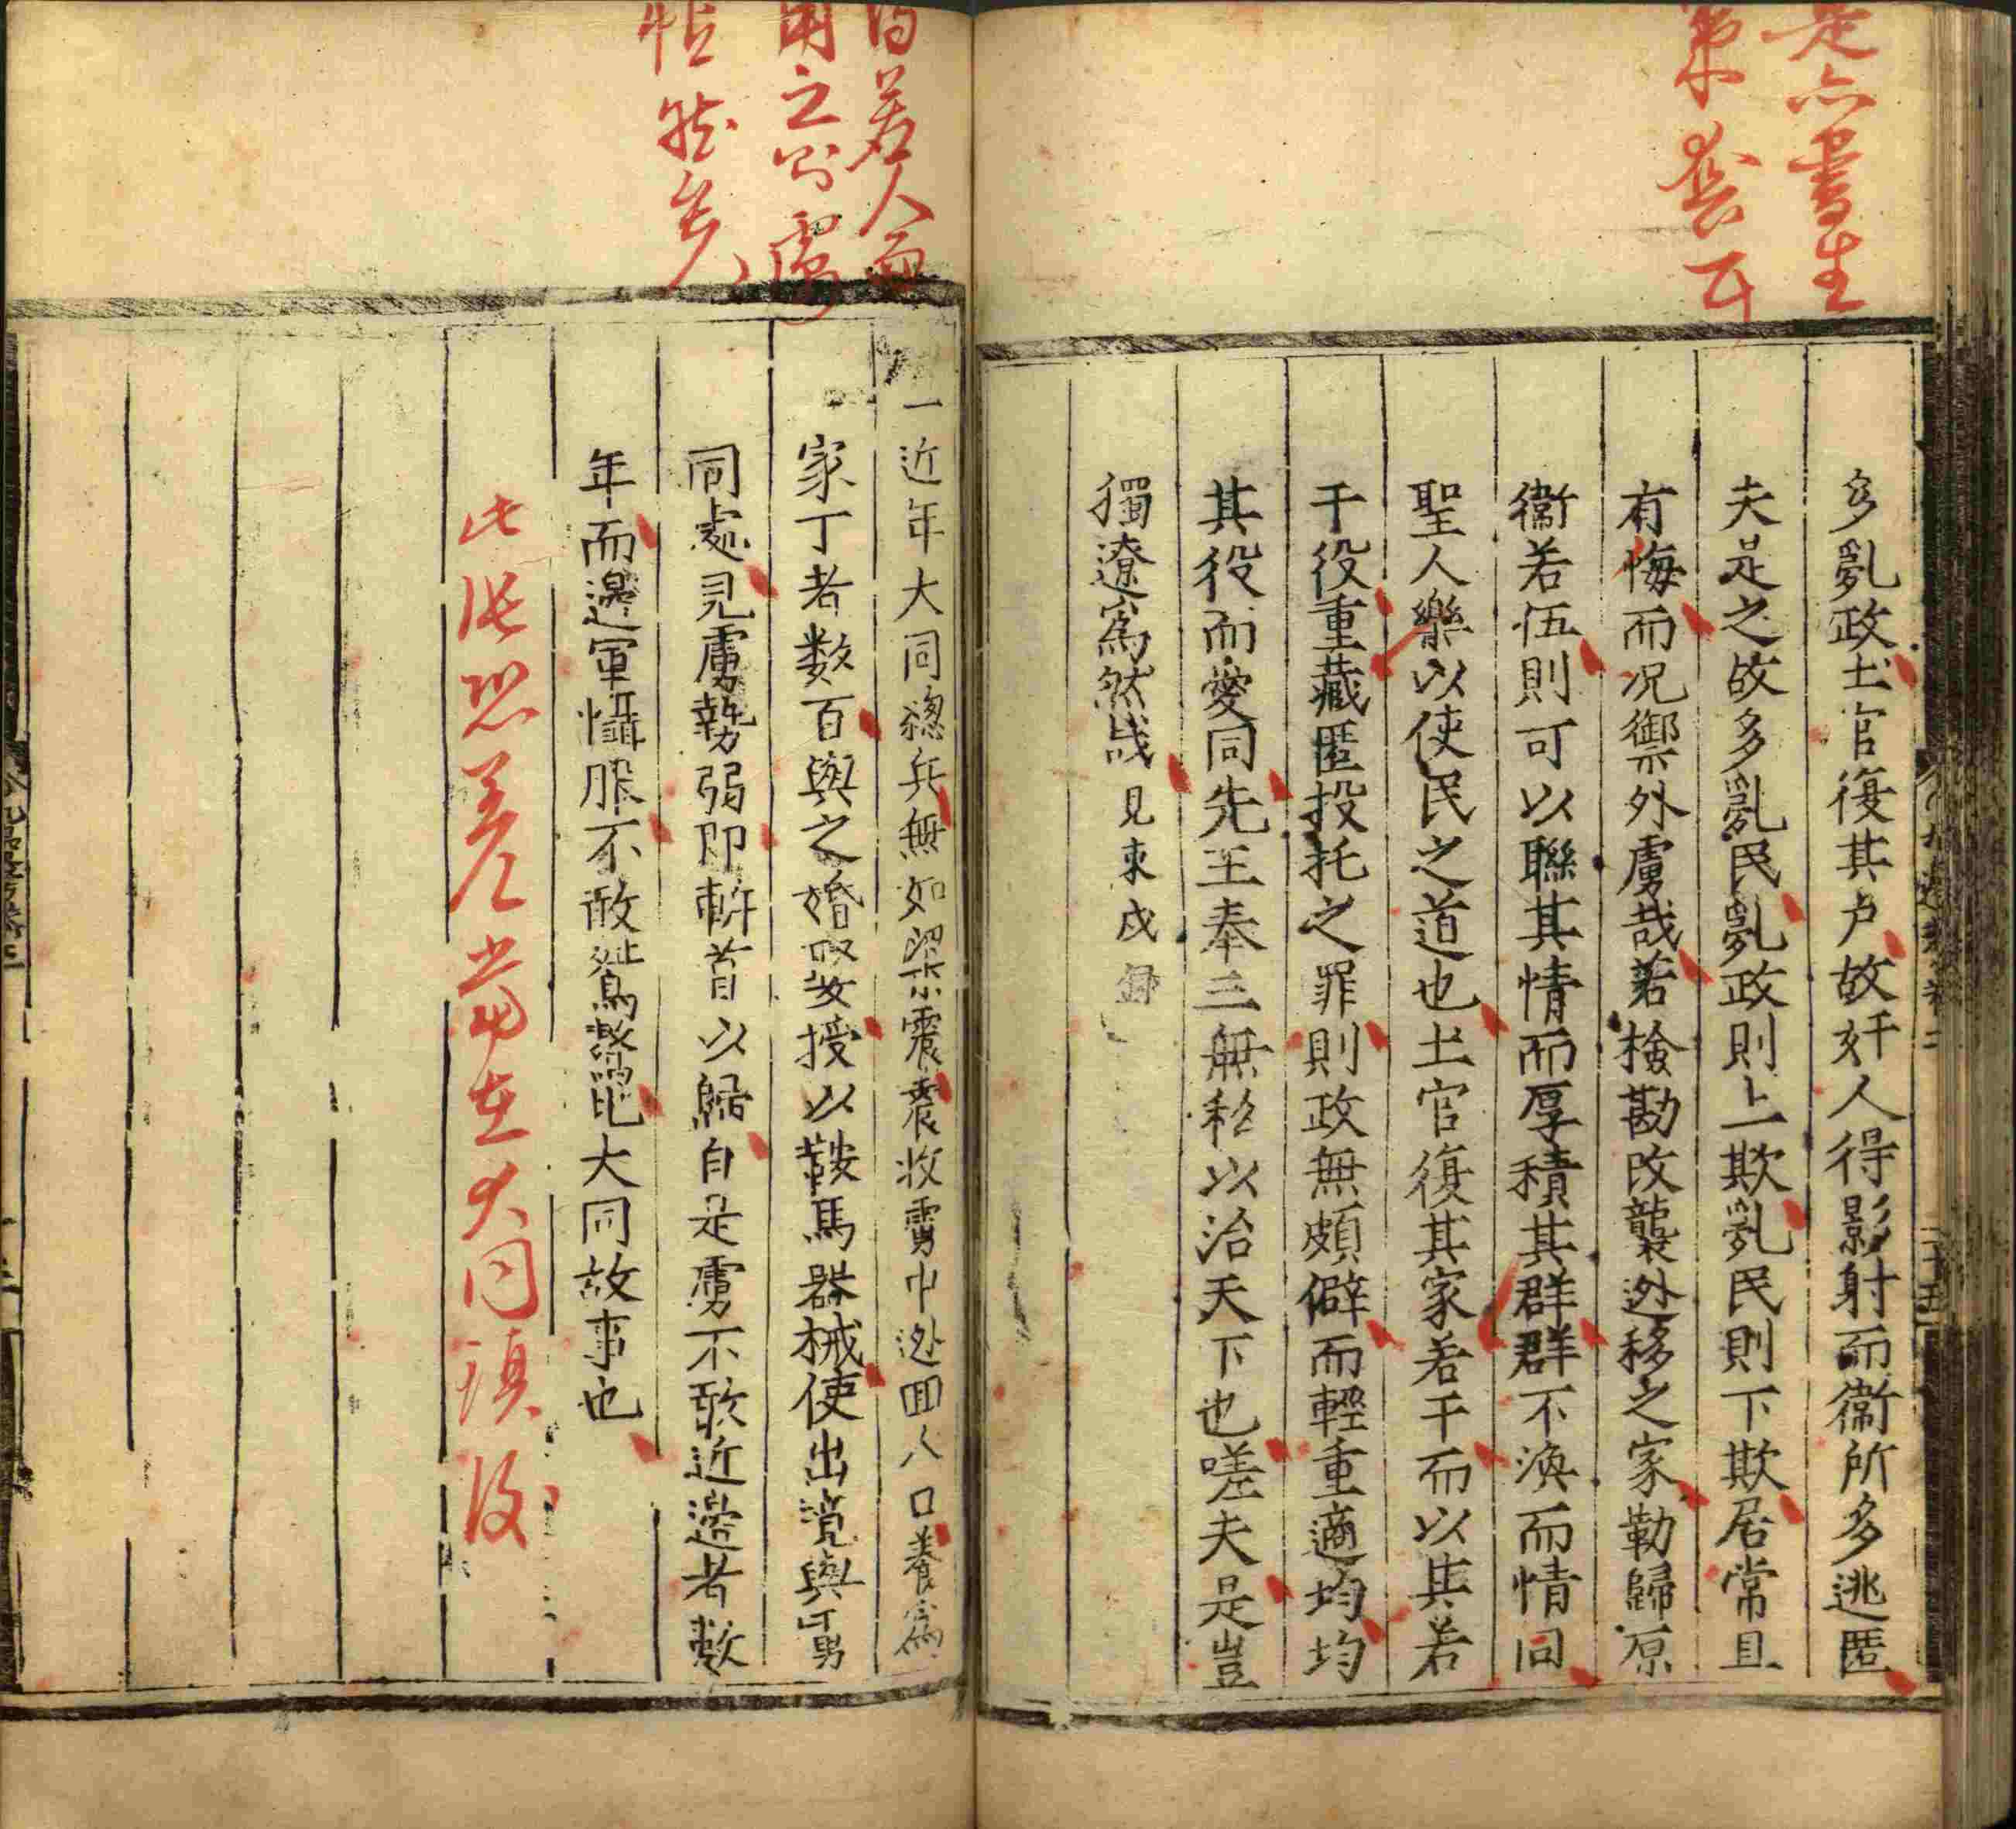 是亦書生
多亂政土官復其戶故奸人得影射而衞所多逃匿
夫是之故多亂民亂政則上欺亂民則下欺居常且
有悔而况禦外虜哉若檢勘改襲迯移之家勒歸原
衞若伍則可以聯其情而厚積其群群不渙而情同
聖人樂以使民之道也土官復其家若干而以其若
干役重藏匿投托之罪則政無頗僻而輕重適均均
其役而愛同先王奉三無私以治天下也嗟夫是豈
獨遼爲然哉 見東戍錄
得若人而
用之則虜
恇然矣
一近年大同總兵無如梁震震收虜中迯囬人口養爲
家丁者数百與之婚娶授以鞍馬器械使出境與虜
同處見虜勢弱即斬首以歸自是虜不敢近邊者數
年而邊軍懾服不敢鴟鷔此大同故事也
此從恐差當在大同鎮後